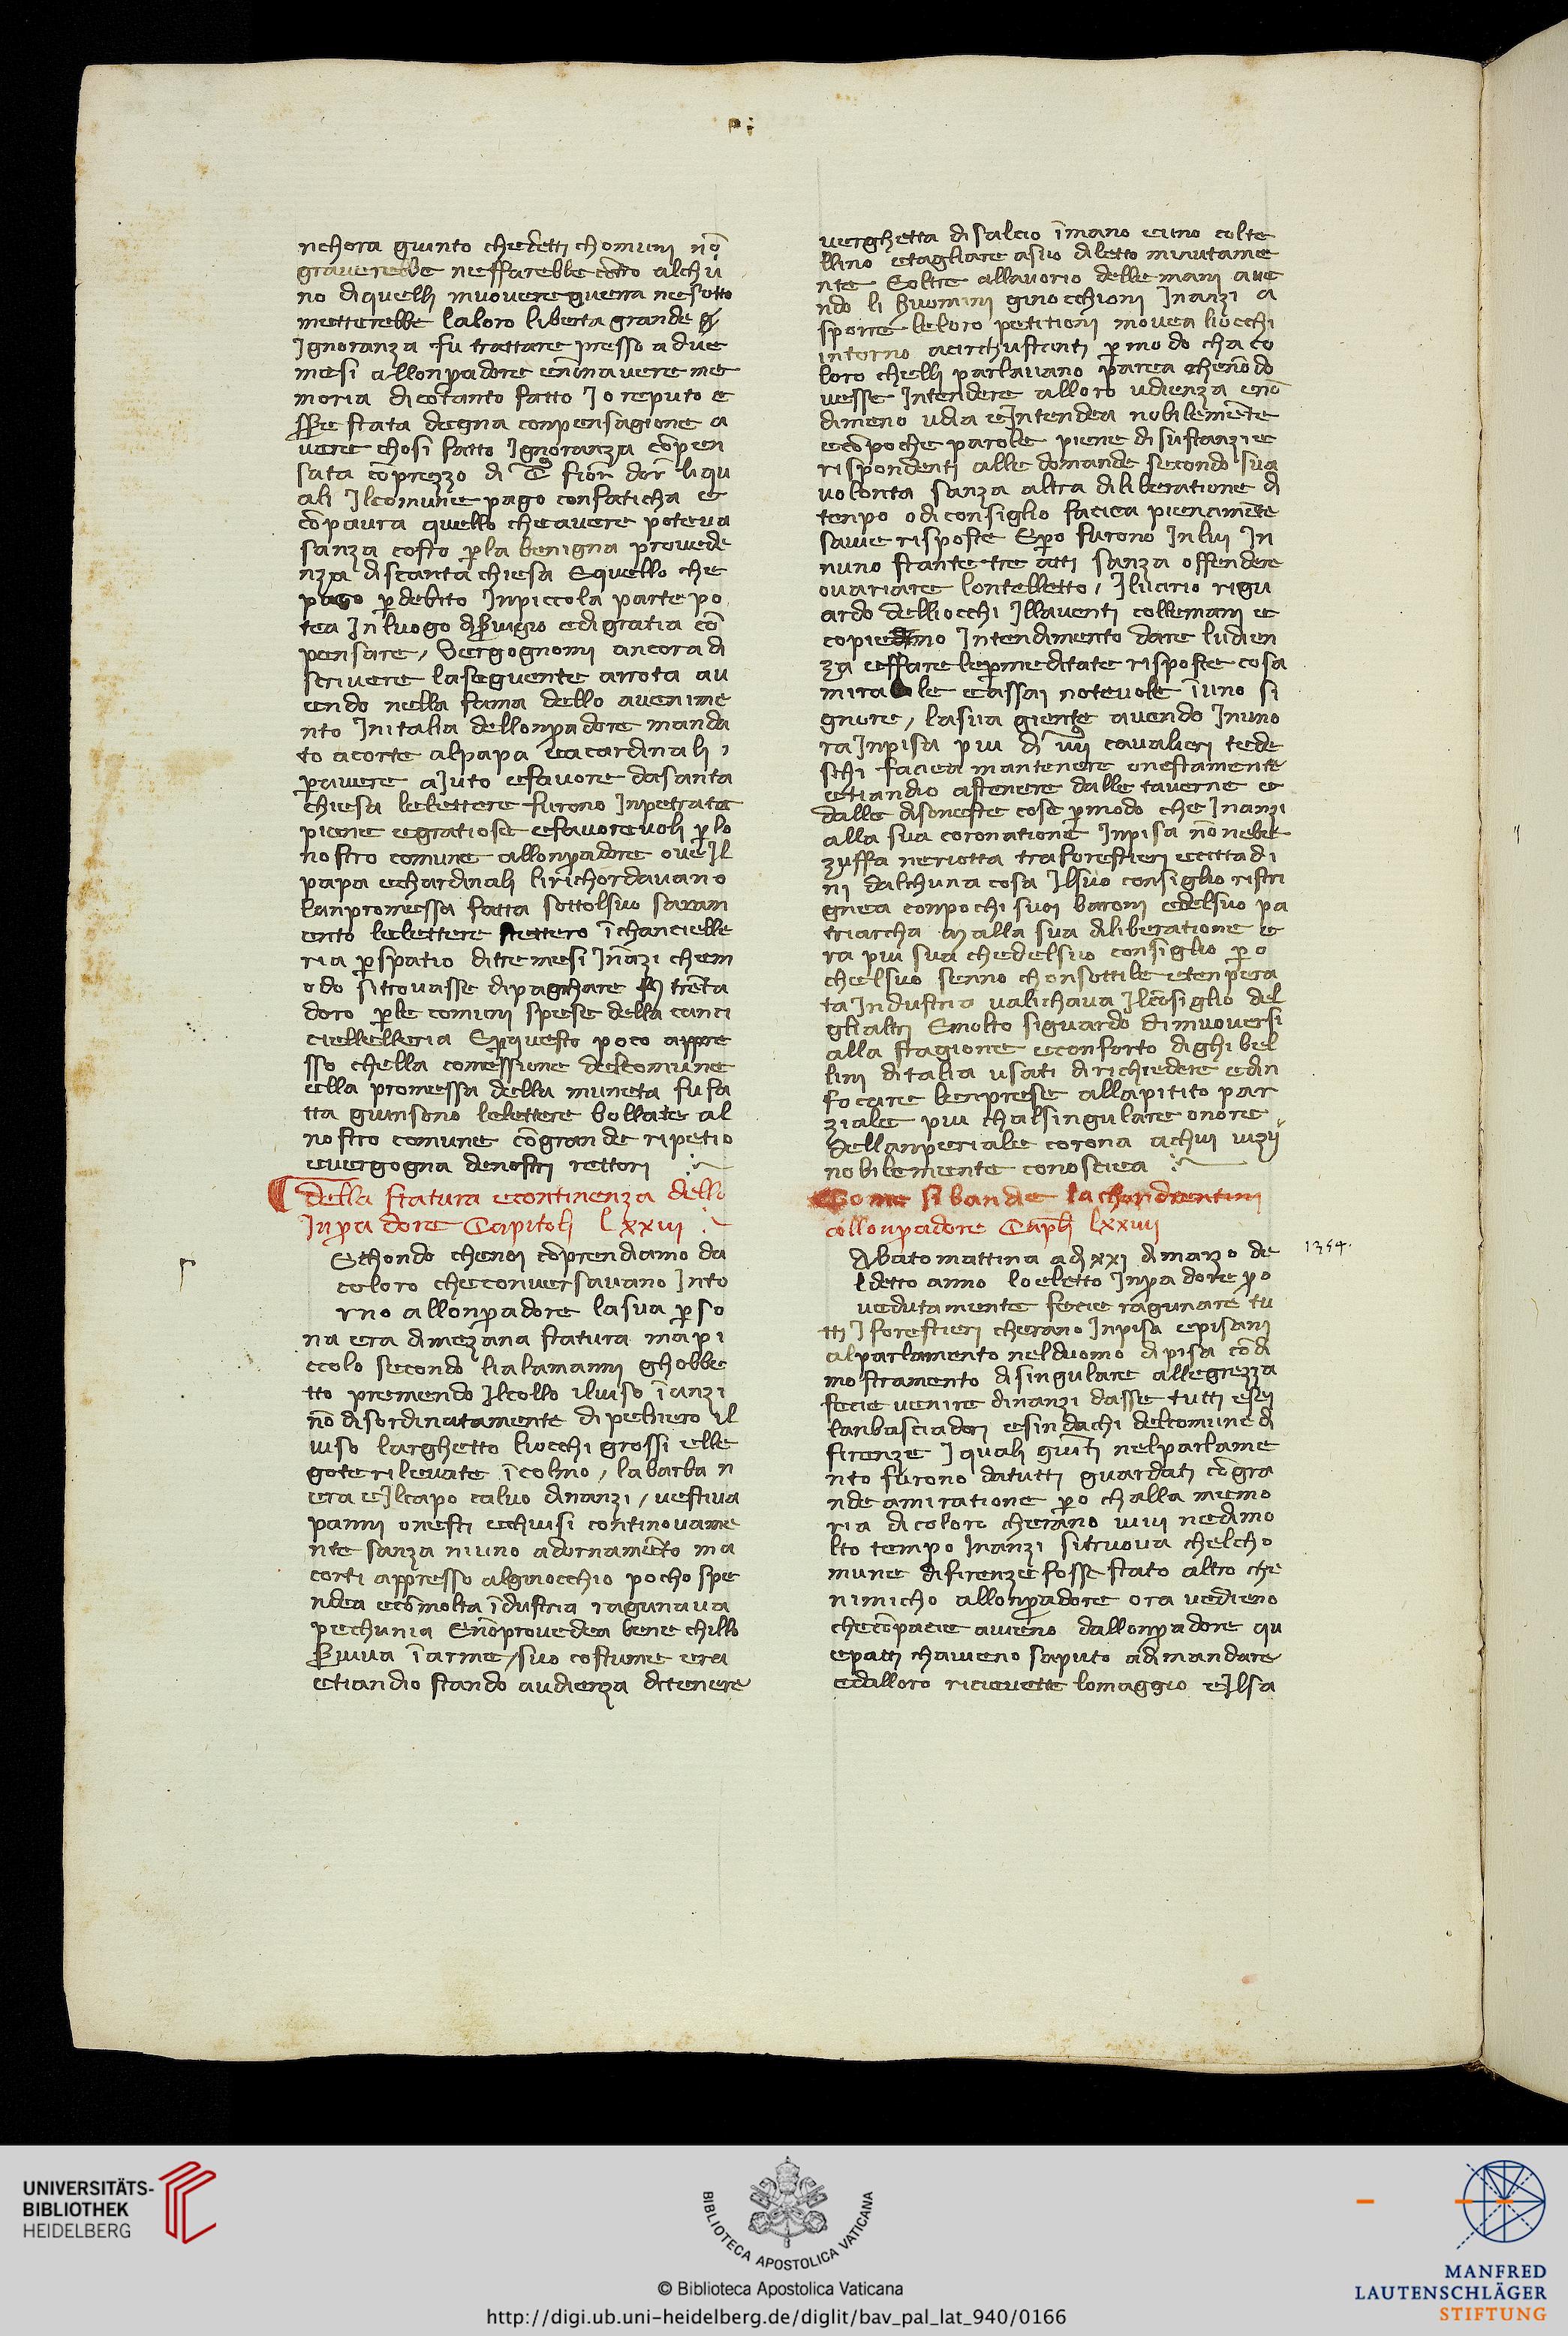 nchora giunto chedetti chomuni nō
graverebbe neffarebbe cōtro alchū
no diquelli muovere guerra nesotto
metterebbe laloro liberta grande
Ignoranza fu trattare presso adue
mesi allonpadore enōnavere me
moria dicotanto fatto Io reputo e
ssere stata degna conpensagione a
vere chosi fatto Ignoranza cōpen
sata cōprezzo di fior dor liqu
ali Ilcomune pago confaticha e
cōpaura quello cheavere poteva
sanza costo p̱la benigna provede
nza disantachiesa Equello che
pago p̱debito Inpiccola parte po
tea Inluogo diservigio edigratia cō
pensare / Vergognomi ancora di
scrivere laseguente arrota av
endo nella fama dello avenime
nto Initalia dellonpadore manda
to acorte alpapa eacardinali /
p̱avere aJuto efavore dasanta
chiesa lelettere furono Inpetrate
piene egratiose efavorevoli p̱lo
nostro comune allonpadore oveIl
papa echardinali lirichordavano
lanpromessa fatta sottolsuo saram
ento lelettere stettero īchancielle
ria p̱spatio ditremesi Ināzi chem
odo sitrovasse dipaghare trēta
doro p̱le comuni spese della canci
ciellelleria Ep̱questo poco appre
sso chella comessione delcomune
ella promessa della muneta fu fa
tta giunsono lelettere bollate al
nostro comune cōgrande ripetio
evergogna denostri rettori
Della statura econtinenza dello
Inpadore Capitolo lxxiii
Sechondo chenoi cōprendiamo da
coloro checonversavano Into
rno allonpadore lasua p̱so
na era dimezana statura mapi
ccolo secondo lialamanni ghobbe
tto premendo Ilcollo elviso īanzi
nō disordinatamente dipeluiero il
viso larghetto liocchi grossi elle
gote rilevate īcolmo / labarba n
era eIlcapo calvo dinanzi / vestiva
panni onesti echiusi continovame
nte sanza niuno adornamēto ma
corti appresso alginocchio pocho spe
ndea ecōmolta īdustria ragunava
pechunia Enōprovedea bene chillo
serviva īarme / suo costume era
etiandio stando audienza ditenere
verghetta disalcio īmano euno colte
llino etagliare asuo diletto minutame
nte Eoltre allavorio delle mani ave
ndo li huomini ginocchioni Inanzi a
sporre leloro petitioni movea liocchi
intorno acirchustanti p̱modo chaco
loro chelli parlavano parea chenō do
vesse Intendere alloro udienza enō
dimeno udia eIntendea nobilemēte
ecōpoche parole piene disustanzie
rispondenti alle domande secondo sua
volonta sanza altra diliberatione di
tenpo odiconsiglio faciea pienamēte
savie risposte Ep̱o furono Inlui In
nuno stante tre atti sanza offendere
ovariare lontelletto / Ilvario rigu
ardo delliocchi Illaventi collemani e
copiено Intendimento dare ludien
za effare lep̱meditate risposte cosa
mirabile eassai notevole īuno si
gnore / lasua giente avendo Inuno
raInpisa piu di cavalieri tede
schi faciea mantenere onestamente
etiandio astenere dalle taverne e
dalle disoneste cose p̱modo che Inanzi
alla sua coronatione Inpisa nō nebe
zuffa neriotta traforestieri ecittadi
ni dalchuna cosa Ilsuo consiglio ristri
gnea conpochi suoi baroni edelsuo pa
triarcha malla sua diliberatione e
ra piu sua chedelsuo consiglio p̱o
chelsuo senno chonsottile etenpera
ta Industria valichava Ilcōsiglio del
glialtri Emolto siguardo dimuoversi
alla stagione econforto dighibel
lini ditalia usati dirichiedere edin
focare lenprese allapitito par
ziale piu chalsingulare onore
dellanperiale corona achui
nobilemente conosciea
Come la
allonpadore Caplo lxxiiii
Abato mattina adi xxi dimarzo de
ldetto anno loeletto Inpadore p̱o
vedutamente fecie ragunare tu
tti Iforestieri cherano Inpisa episani
alparlamento nelduomo dipisa cōdi
mostramento disingulare allegrezza
fecie venire dinanzi dasse tutti
lanbasciadori esindachi delcomune di
firenze Iquali giūti nelparlame
nto furono datutti guardati cōgra
nde amiratione p̱o challa memo
ria dicoloro cherāno vivi nedimo
lto tempo Inanzi sitruova chelcho
mune difirenze fosse stato altro che
nimicho allonpadore ora vedieno
checōpacie avieno dallonpadore qu
epatti chavieno saputo adimandare
edalloro ricievette lomaggio eIlsa
1354.
UNIVERSITÄTS-
BIBLIOTHEK
HEIDELBERG
BIBLIOTECA APOSTOLICA VATICANA
© Biblioteca Apostolica Vaticana
http://digi.ub.uni-heidelberg.de/diglit/bav_pal_lat_940/0166
MANFRED
LAUTENSCHLÄGER
STIFTUNG